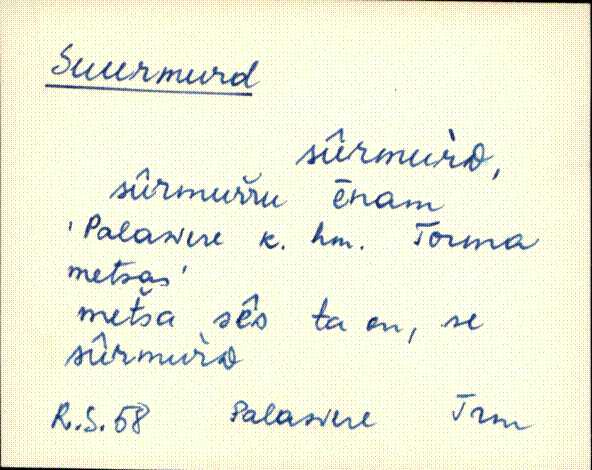 Suurmurd
sûrmur̀D,
sûrmur̆ru ēnam
'Palasvere k. hm. Torma
metsas'
met̆sa sê̬s ta on, se
sûrmur̀D
R.S. 58 Palasvere Trm